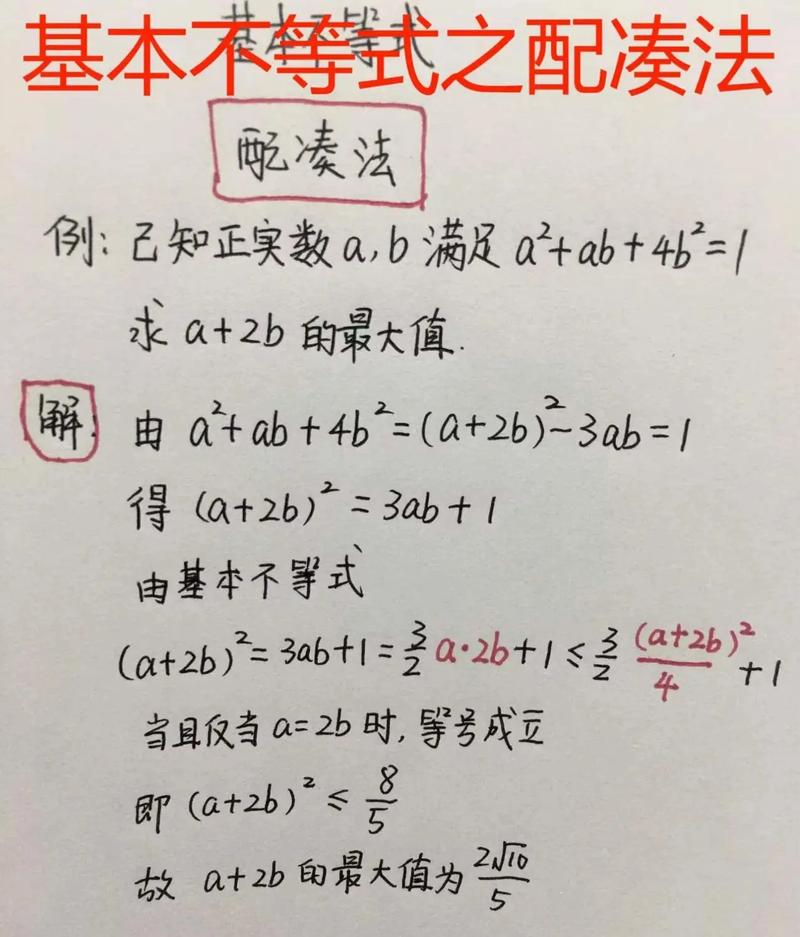 基本不等式
基本不等式之配凑法
配凑法
例: 已知正实数a,b满足 a²+ab+4b²=1
求 a+2b 的最大值.
解: 由 a²+ab+4b²=(a+2b)²-3ab=1
得 (a+2b)²=3ab+1
由基本不等式
(a+2b)²=3ab+1=3/2 a·2b+1≤3/2 (a+2b)²/4+1
当且仅当 a=2b 时, 等号成立
即 (a+2b)²≤8/5
故 a+2b 的最大值为 2√10/5